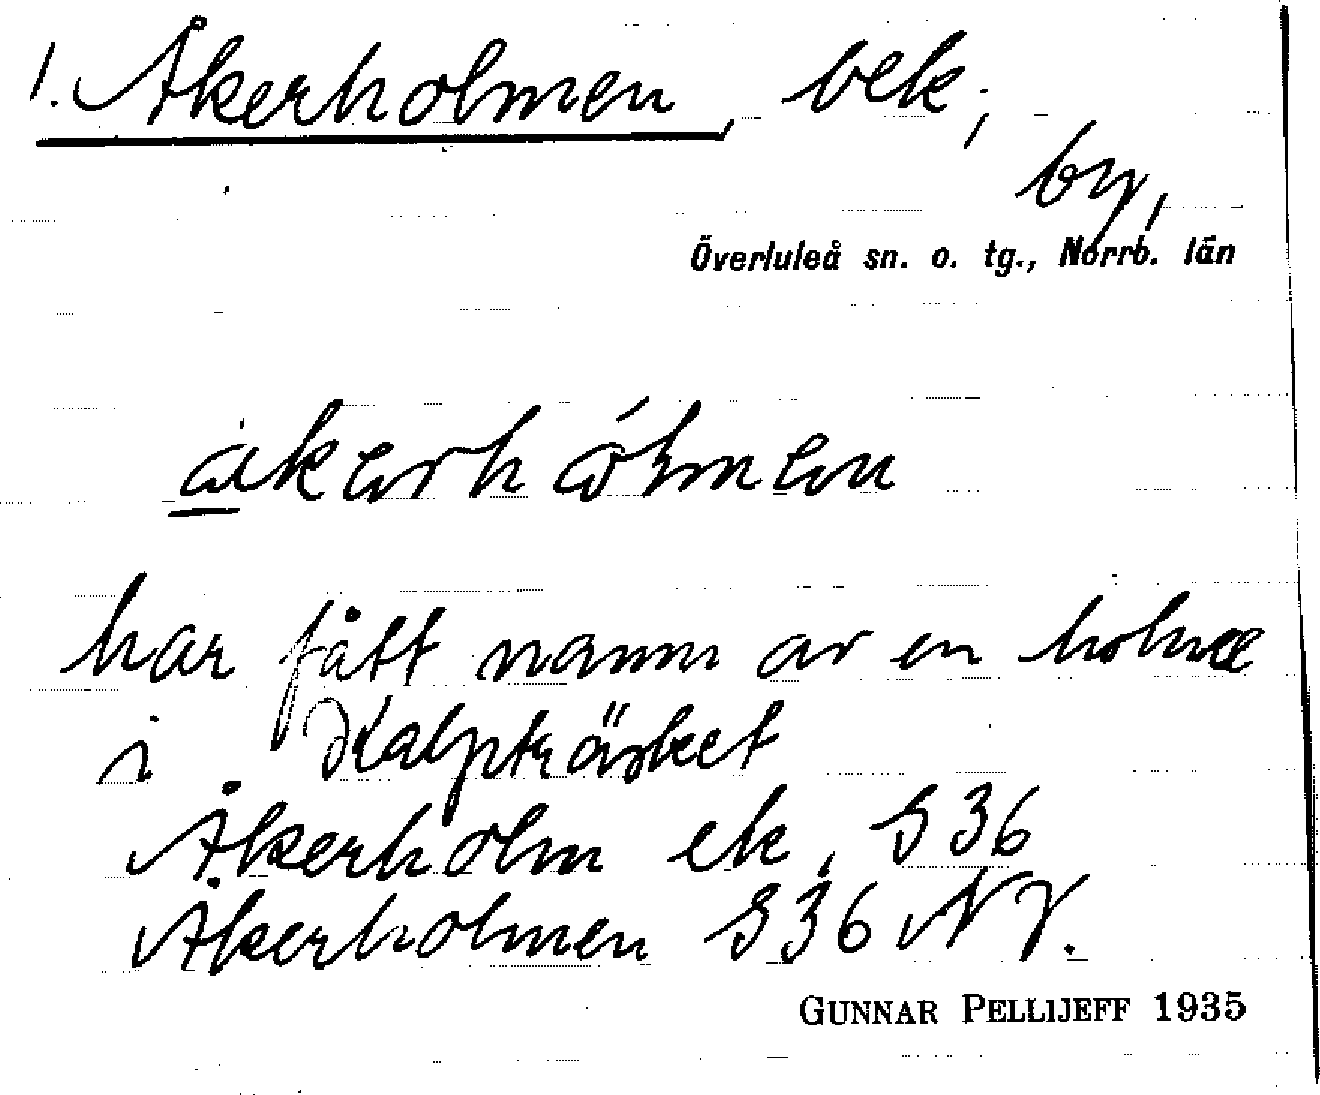 1. Åkerholmen, bek,
by,
Överluleå sn. o. tg., Norrb. län
åkerhólmen
har fått namn av en holme
i Kalpträsket
Åkerholm ek, S 36
Åkerholmen S 36 NV.
GUNNAR PELLIJEFF 1935